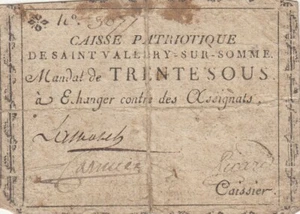 CAISSE PATRIOTIQUE
DE SAINT VALLERY-SUR-SOMME.
Mandat de TRENTE SOUS.
à Echanger contre des Assignats,
Caissier.